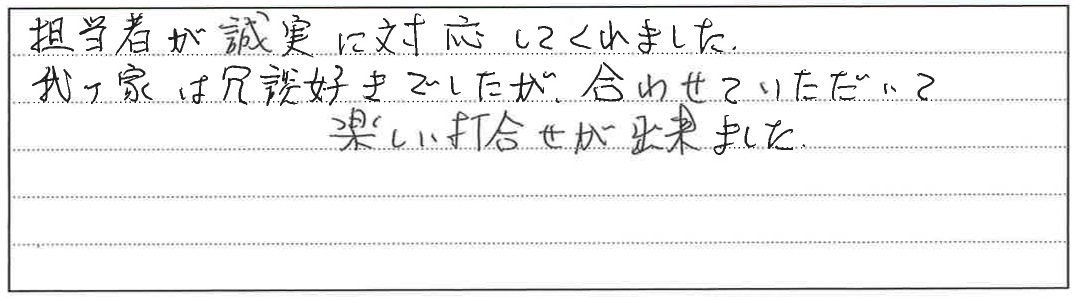 担当者が誠実に対応してくれました.
我ヶ家は冗談好きでしたが、合わせていただいて
楽しい打合せが出来ました.